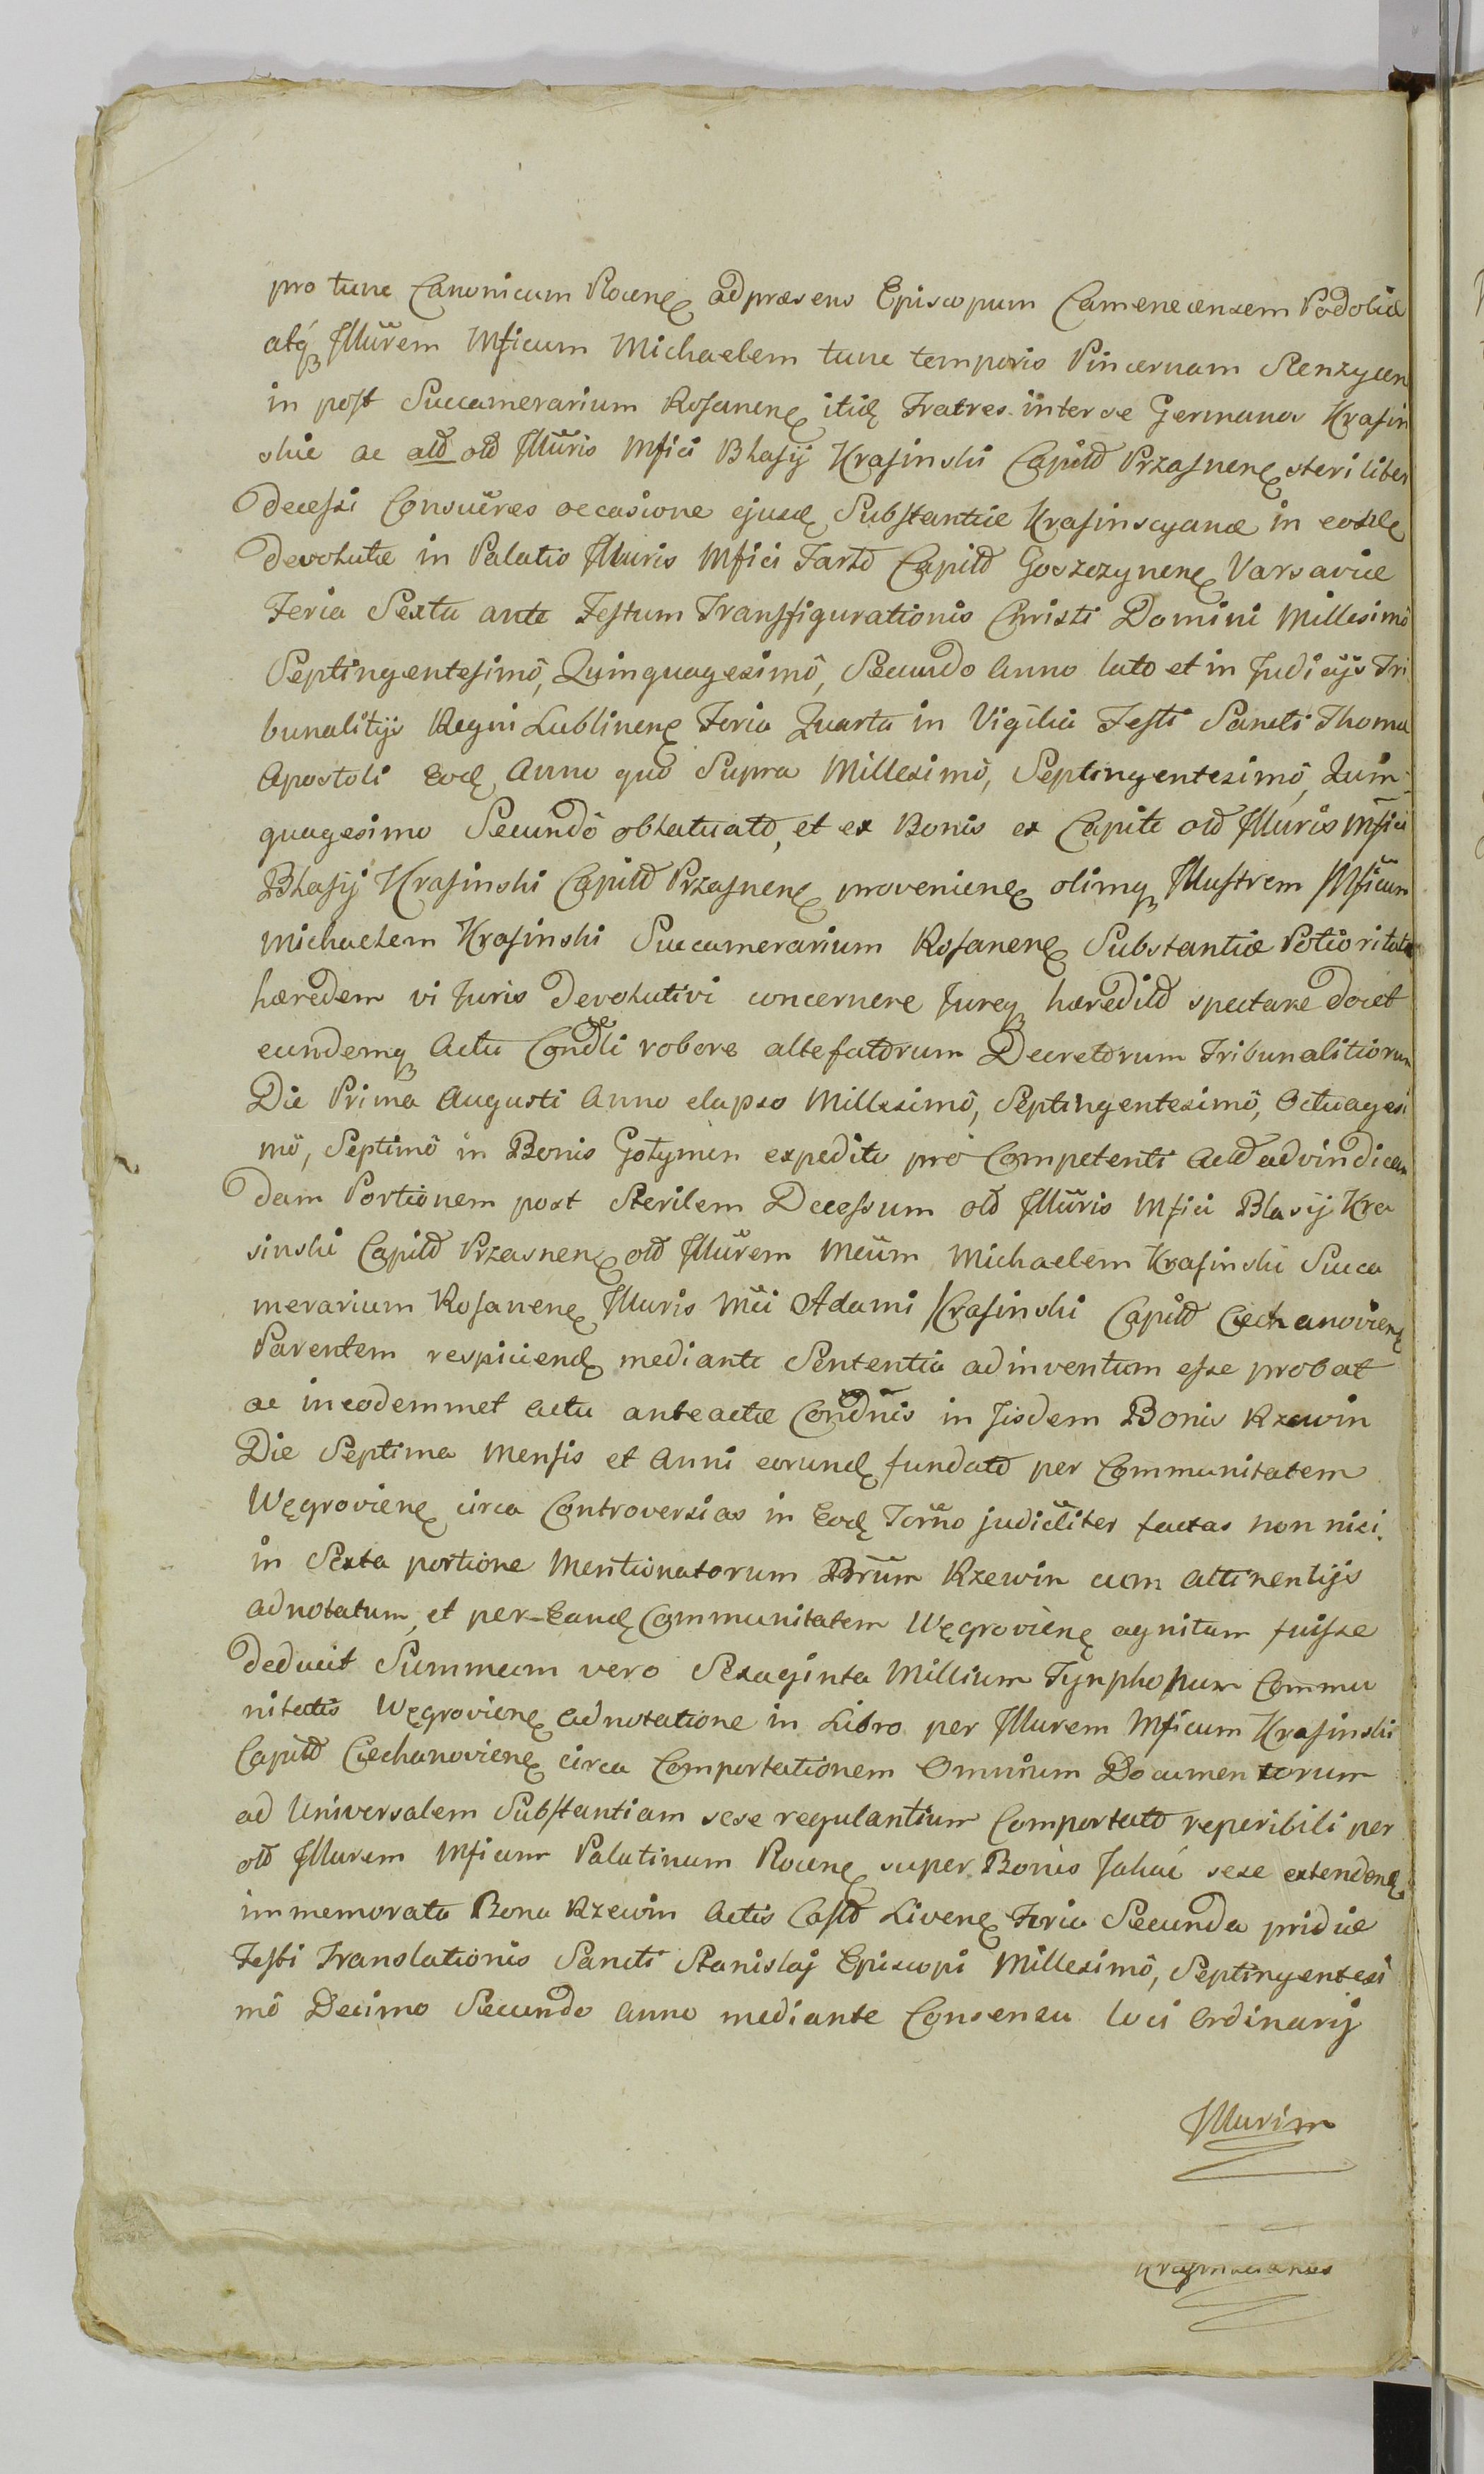 pro tunc Canonicum Plocenę ad præsens Episcopum Camenecensem Podoliæ
atqȝ Jllũrem Mficum Michaelem tunc temporis Pincernam Stenzycen
in post Succamerarium Rosanenę itidę Fratres inter se Germanos Krasin
skie ac altd old Jllũris Mfici Blasij Krasinski Capitd Przasnenę steriliter
Decessi Consuũres occasione ejusdę Substantiæ Krasinscyanæ in eosdę
Devolutæ in Palatio Jlluris Mfici Tarld Capitd Goszczynenę Varsaviæ
Feria Sexta ante Festum Transfigurationis Christi Domini Millesimô
Septingentesimô, Quinquagesimô, Secundo Anno lato et in Judicijs Tri
bunalitijs Regni Lublinenę Feria Quarta in Vigilia Festi Sancti Thomæ
Apostoli Eodę Anno quo Supra Millesimô, Septingentesimô, Quin-
quagesimo Secundô oblatuatd, et ex Bonis ex Capite old Jlluris Mfici
Blasij Krasinski Capitd Przasnenę provenienę olimqȝ Jllustrem Mficum
Michaelem Krasinski Succamerarium Rosanenę Substantiæ Potioritate
hæredem vi Juris Devolutivi concernere Jureqȝ hæreditd spectare docet
eundemqȝ Actu Condli robore allefatorum Decretorum Tribunalitiorum
Die Prima Augusti Anno elapso Millesimô, Septingentesimô, Octuagesi
mô, Septimô in Bonis Gołymin expedito pro Competenti Actd advindican
dam Portionem post Sterilem Decessum old Jllũris Mfici Blasij Kra
sinski Capitd Przasnenę old Jllũrem Mcũm Michaelem Krasinski Succa
merarium Rosanenę Jlluris Mci Adami Krasinski Capitd Ciechanovienę
Parentem respiciendę mediante Sententia adinventum esse probat
ac in eodemmet actu anteactæ Condnis in Jisdem Bonis Rzewin
Die Septima Mensis et Anni eorundę fundatd per Communitatem
Węgrovienę circa Controversias in Eodę Termno judicliter factas non nisi
in Sexta portione Mentionatorum Brum Rzewin cum attinentijs
adnotatum, et per Eandę Communitatem Węgrovienę agnitam fuisse
deducit Summam vero Sexaginta Millium Tynphorum Commu
nitatis Węgrovienę adnotatione in Libro per Jllurem Mficum Krasinski
Capitd Ciechanovienę circa Comportationem Omnium Documentorum
ad Universalem Substantiam sese regulantium Comportatd reperibili per
old Jllurem Mficum Palatinum Plocenę super Bonis sese extendenę
immemorata Bona Rzewin Actis Castd Livenę Feria Secunda pridie
Festi Translationis Sancti Stanislaj Episcopi Millesimô, Septingentesi
mô Decimo Secundo Anno mediante Consensu loci Ordinarij
Jllurim
Krasinscianas